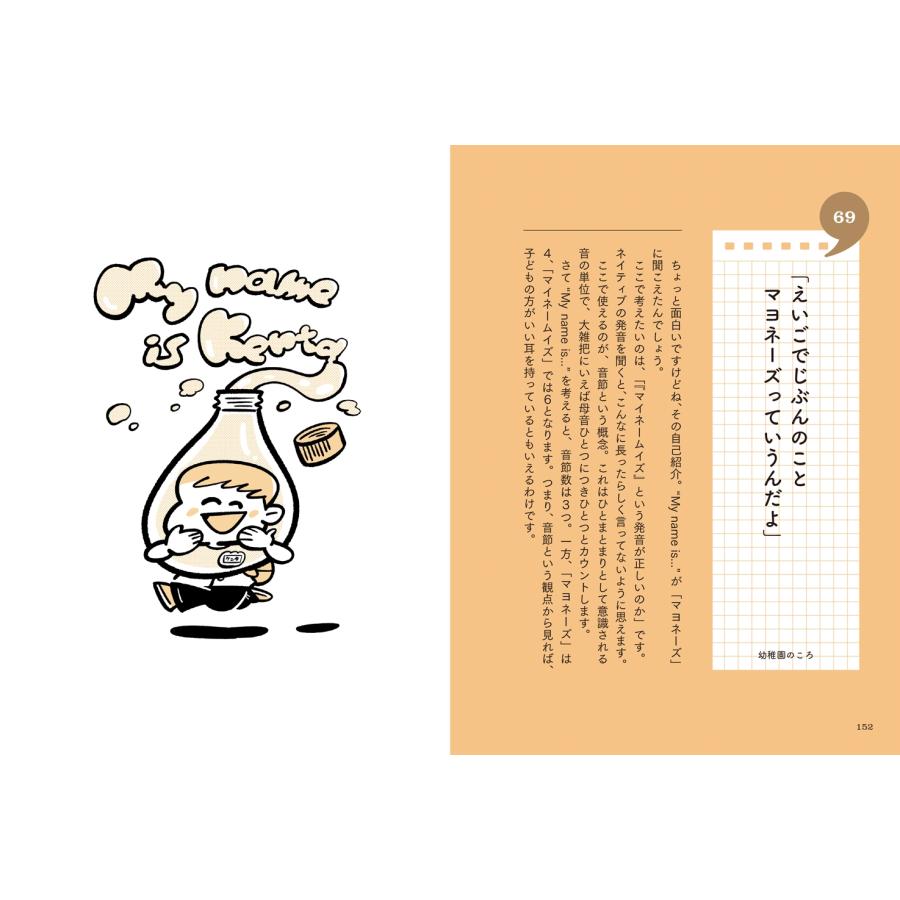 My name
is Kenta
ケンタ
69
「えいごでじぶんのこと
マヨネーズっていうんだよ」
幼稚園のころ
ちょっと面白いですけどね、その自己紹介。“My name is…”が「マヨネーズ」
に聞こえたんでしょう。
ここで考えたいのは、「『マイネームイズ』という発音が正しいのか」です。
ネイティブの発音を聞くと、こんなに長ったらしく言ってないように思えます。
ここで使えるのが、音節という概念。これはひとまとまりとして意識される
音の単位で、大雑把にいえば母音ひとつにつきひとつとカウントします。
さて“My name is…”を考えると、音節数は3つ。一方、「マヨネーズ」は
4、「マイネームイズ」では6となります。つまり、音節という観点から見れば、
子どもの方がいい耳を持っているともいえるわけです。
152